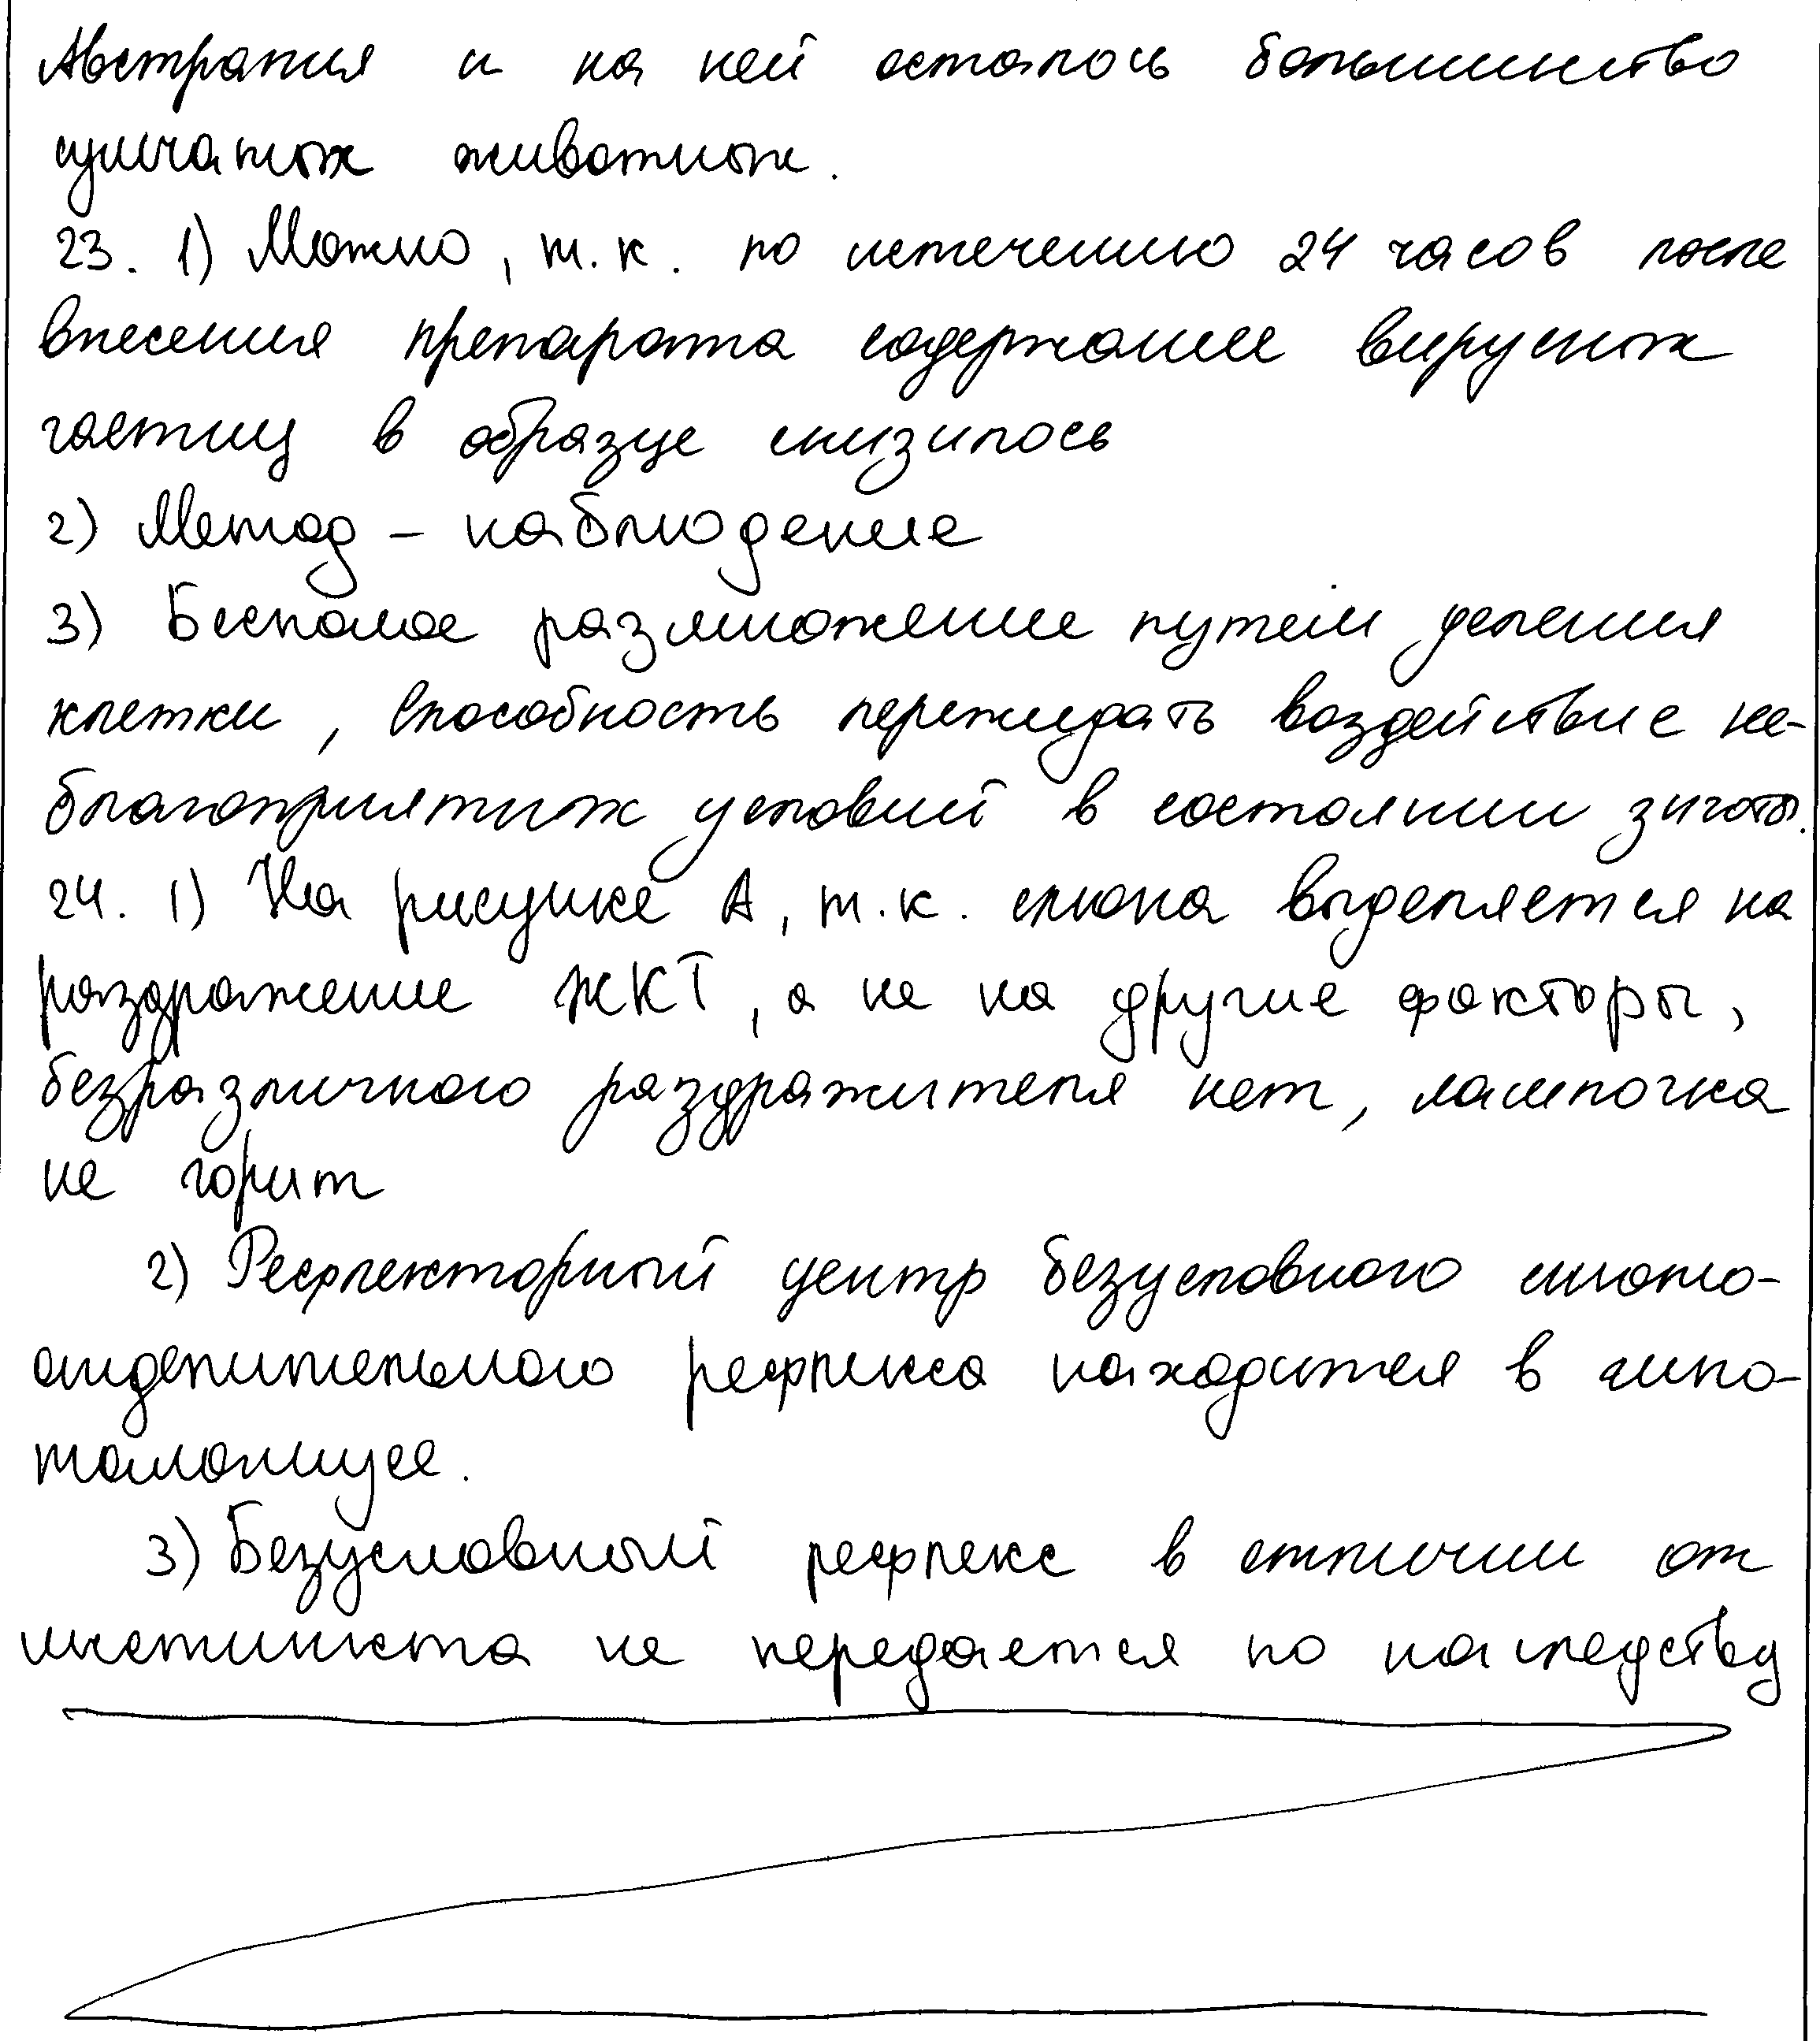 Австралия и на ней осталось большинство
сумчатых животных.
23. 1) Можно, т.к. по истечению 24 часов после
внесения препарата содержание вирусных
частиц в образце снизилось
2) Метод – наблюдение
3) Бесполое размножение путем деления
клетки, способность пережидать воздействие не-
благоприятных условий в состоянии зиготы.
24. 1) На рисунке А, т.к. слюна выделяется на
раздражение ЖКТ, а не на другие факторы,
безразличного раздражителя нет, лампочка
не горит
2) Рефлекторный центр безусловного слюно-
отделительного рефлекса находится в гипо-
таламусе.
3) Безусловный рефлекс в отличии от
инстинкта не передается по наследству